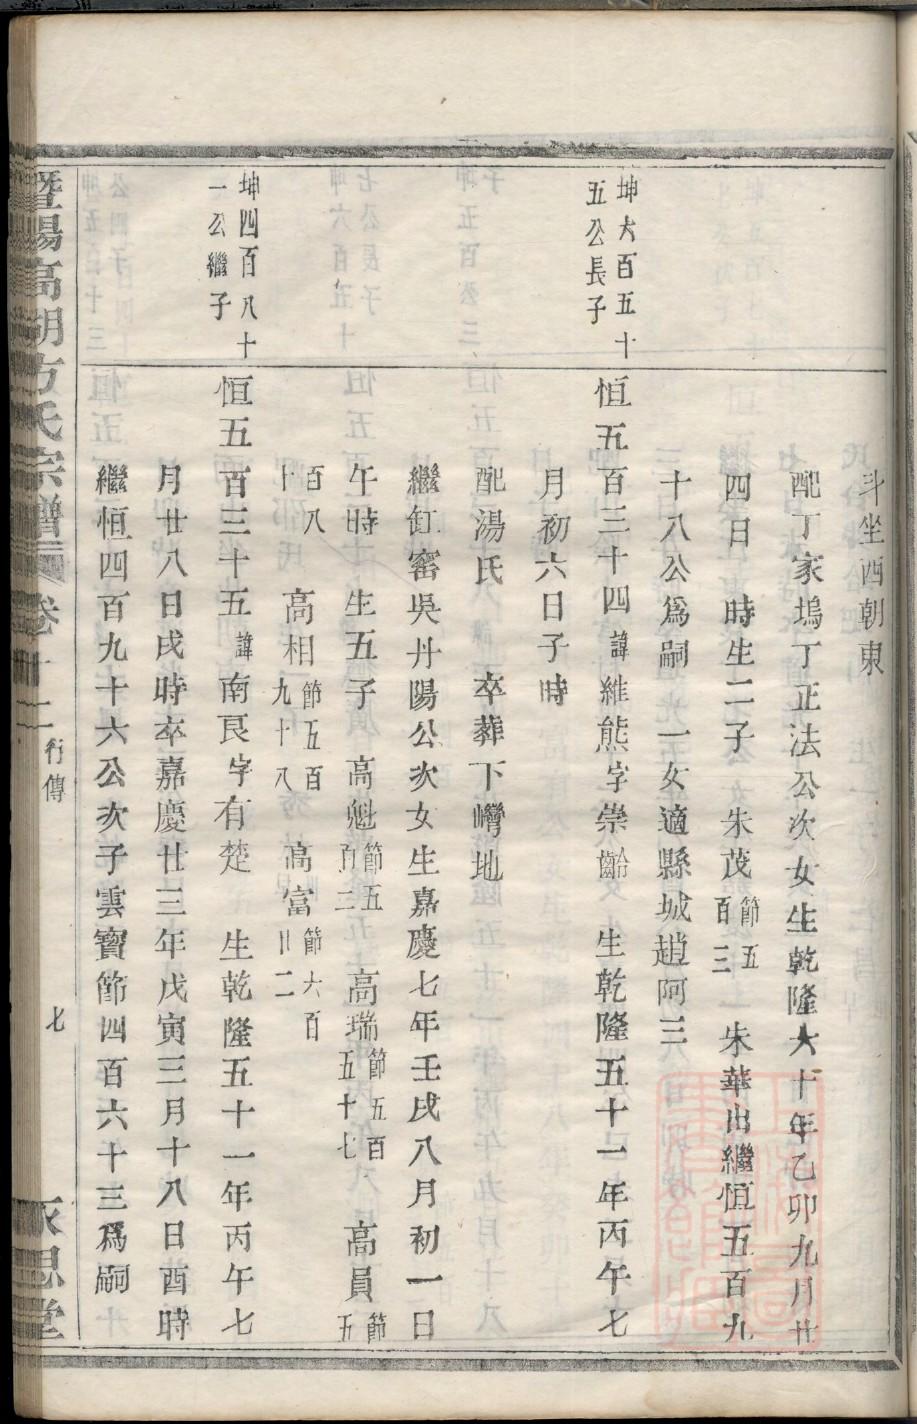 斗坐酉朝東
配丁家塢丁正法公次女生乾隆六十年乙卯九月廿
四日　時生二子　朱茂節五百三　朱華出繼恒五百九
十八公爲嗣一女適縣城趙阿三
坤六百五十五公長子
恒五百三十四諱維熊字崇齡　生乾隆五十一年丙午七
月初六日子時
配湯氏　卒葬下嶹地
繼缸窰吳丹陽公次女生嘉慶七年壬戌八月初一日
午時生五子　高魁節五百二　高瑞節五百五十七　高員節五
百八十　高相節五百九十八　高富節六百卅二
坤四百八十一公繼子
恒五百三十五諱南艮字有楚　生乾隆五十一年丙午七
月廿八日戌時卒嘉慶廿三年戊寅三月十八日酉時
繼恒四百九十六公次子雲寳節四百六十三爲嗣
暨陽高湖方氏宗譜　卷十二　行傳　七　永思堂